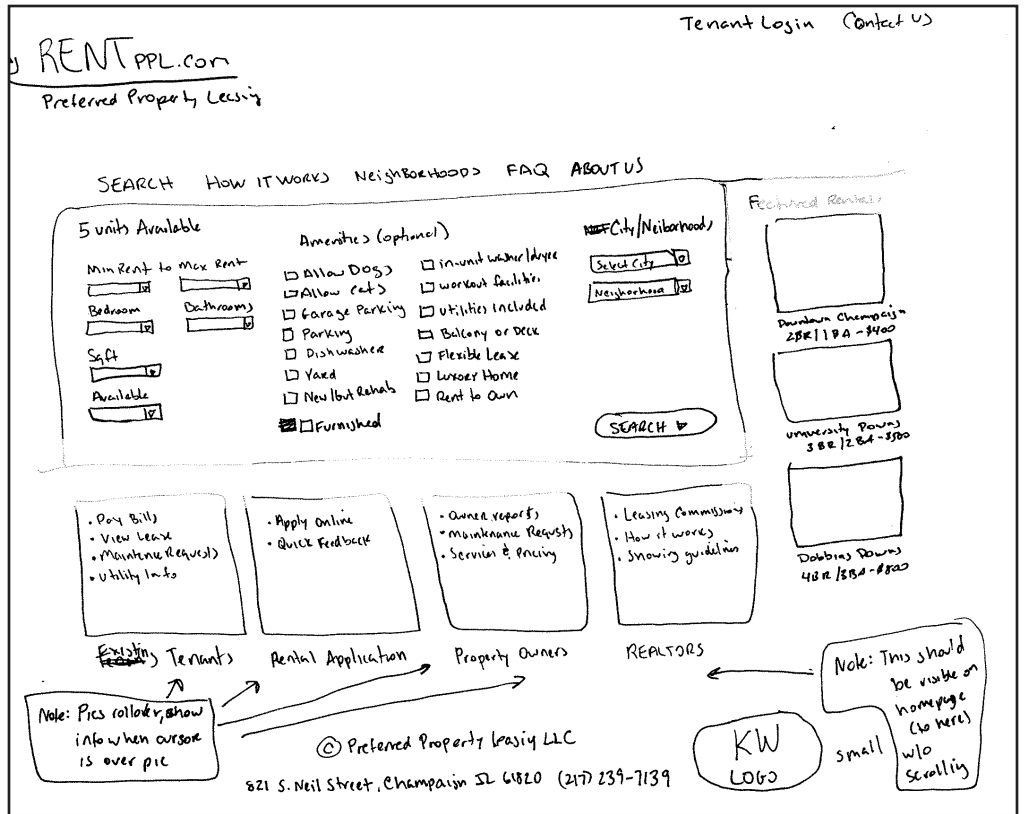 Tenant Login Contact Us
RENTPPL.com
Preferred Property Leasig
SEARCH HOW IT WORKS NeighBorHooDS FAQ ABOUT US
5 units Available
Min Rent to Max Rent
Bedroom Bathrooms
Sqft
Available
Amenities (optional)
Allow Dogs
Allow cats
Garage Parking
Parking
Dishwasher
Yard
New/but Rehab
Furnished
in-unit washer/dryer
workout facilities
utilities Included
Balcony or Deck
Flexible Lease
Luxory Home
Rent to Own
City/Neiborhoods
Select City
Neighborhood
SEARCH
Featured Rentals
Downtown Champaign
2BR/1BA-$400
University Downs
3BR/2BA-$500
Dobbins Downs
4BR/3BA-$800
• Pay Bills
• View Lease
• Maintence Requests
• Utility Info
Existing Tenants
• Apply Online
• Quick Feedback
Rental Application
• Owner reports
• Maintenance Requests
• Services & Pricing
Property Owners
• Leasing Commissions
• How it works
• Showing guidelines
REALTORS
Note: Pics rollover, show
info when cursor
is over pic
Note: This should
be visible on
homepage
(to here)
w/o
scrolling
© Preferred Property Leasig LLC
821 S. Neil Street, Champaign IL 61820 (217) 239-7139
KW
LOGO
small